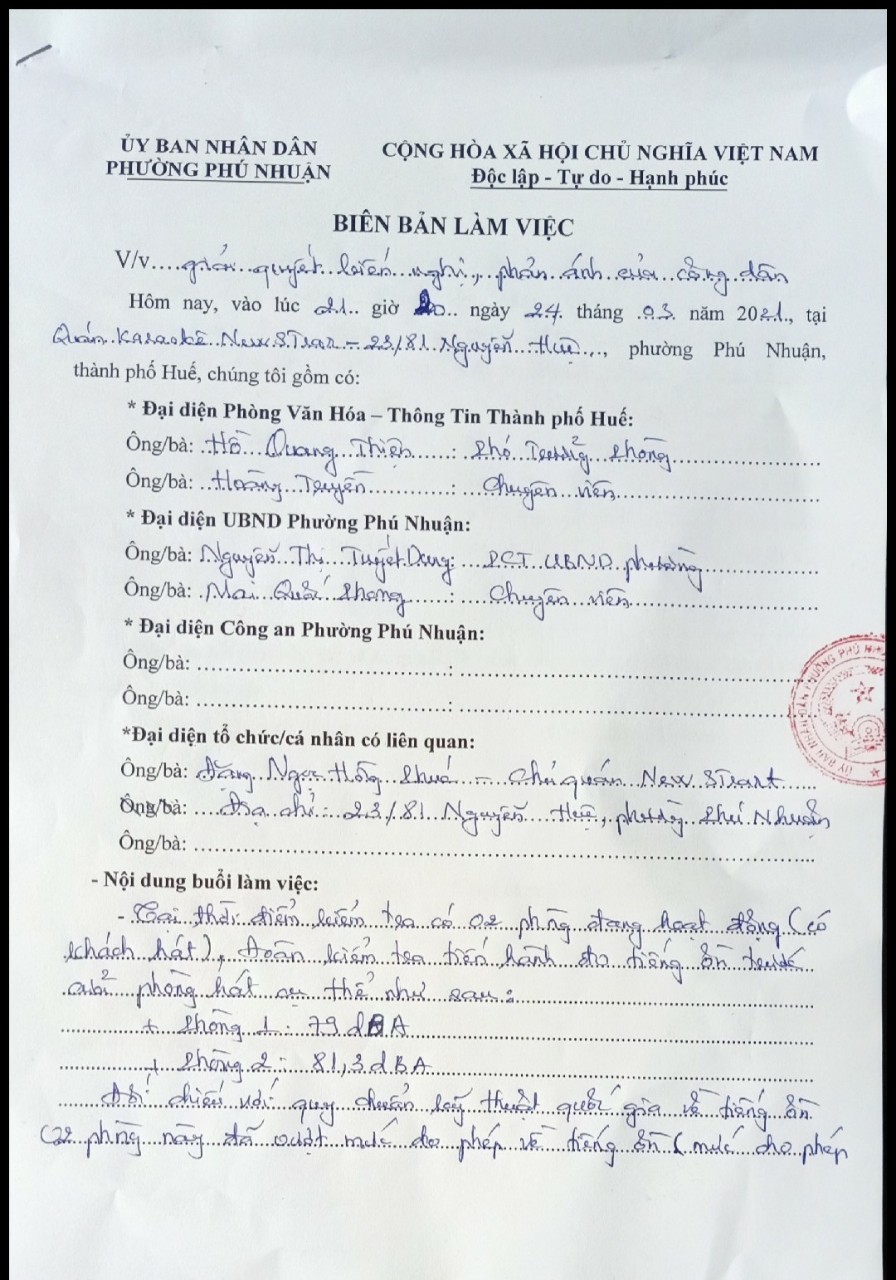 ỦY BAN NHÂN DÂN
PHƯỜNG PHÚ NHUẬN
CỘNG HÒA XÃ HỘI CHỦ NGHĨA VIỆT NAM
Độc lập - Tự do - Hạnh phúc
BIÊN BẢN LÀM VIỆC
V/v.... giải quyết kiến nghị, phản ánh của công dân
Hôm nay, vào lúc 21.. giờ 20.. ngày 24. tháng .03. năm 2021., tại
Quán Karaoke New STrar - 23/81 Nguyễn Huệ..., phường Phú Nhuận,
thành phố Huế, chúng tôi gồm có:
* Đại diện Phòng Văn Hóa – Thông Tin Thành phố Huế:
Ông/bà: Hồ Quang Thiện : Phó Trưởng phòng
Ông/bà: Hoàng Truyền : Chuyên viên
* Đại diện UBND Phường Phú Nhuận:
Ông/bà: Nguyễn Thị Tuyết Dung : PCT UBND phường
Ông/bà: Mai Quốc Phong : Chuyên viên
* Đại diện Công an Phường Phú Nhuận:
Ông/bà: ........................................ : ........................................
Ông/bà: ........................................ : ........................................
*Đại diện tổ chức/cá nhân có liên quan:
Ông/bà: Đặng Ngọc Hồng - Chủ quán New STrart
Ông/bà: Địa chỉ: 23/81 Nguyễn Huệ, phường Phú Nhuận
Ông/bà: ........................................
- Nội dung buổi làm việc:
- Tại thời điểm kiểm tra có 02 phòng đang hoạt động (có
khách hát), Đoàn kiểm tra tiến hành đo tiếng ồn trước
cửa phòng hát cụ thể như sau:
+ Phòng 1: 79 dBA
+ Phòng 2: 81,3 dBA
Đối chiếu với quy chuẩn kỹ thuật quốc gia về tiếng ồn
02 phòng này đã vượt mức cho phép về tiếng ồn (mức cho phép
ỦY BAN NHÂN DÂN PHƯỜNG PHÚ NH